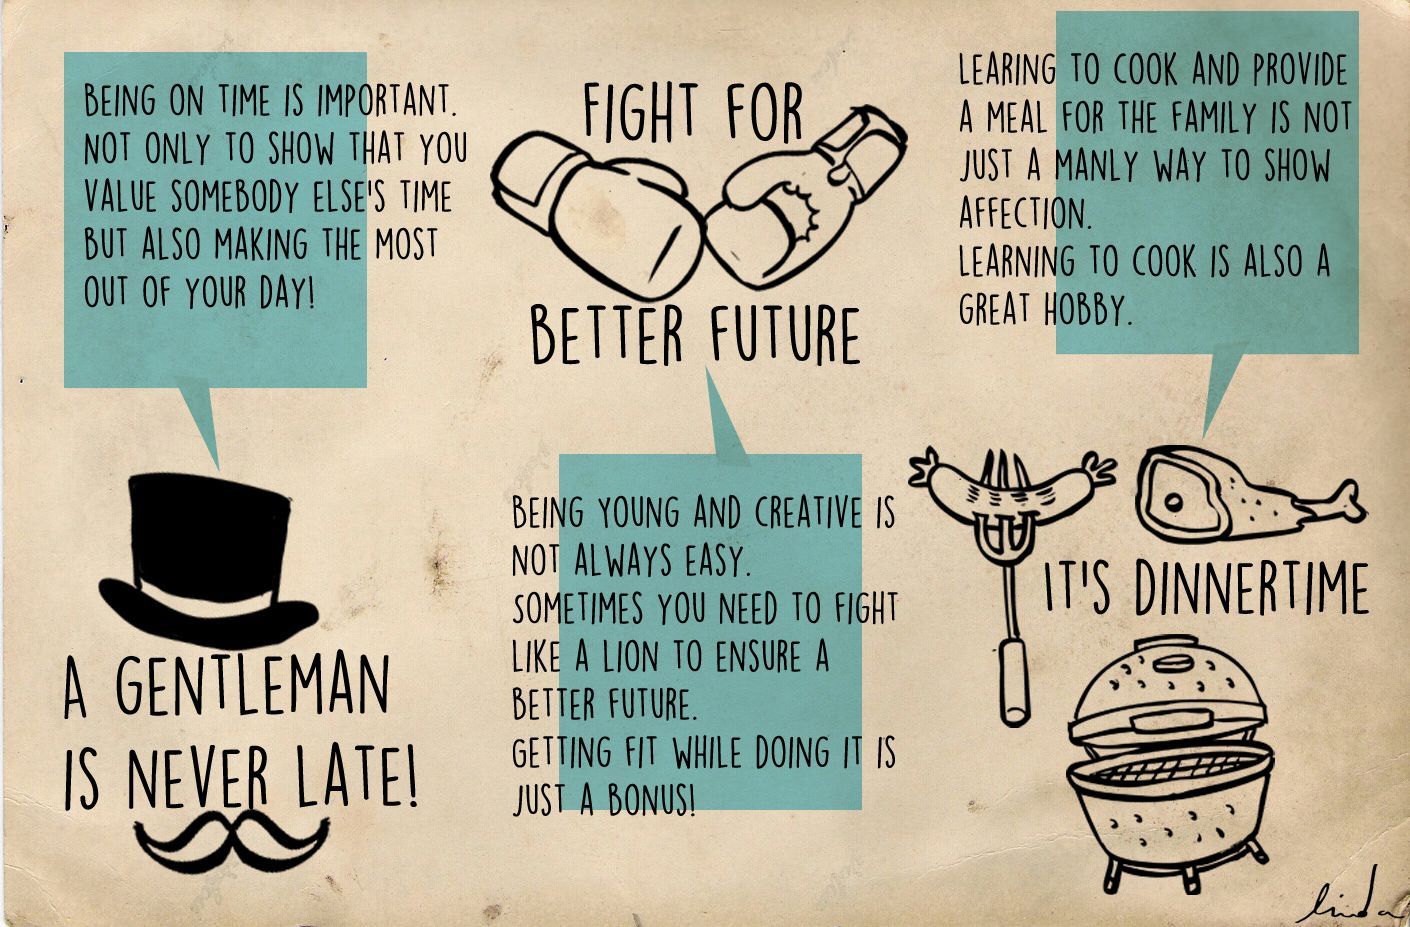 BEING ON TIME IS IMPORTANT.
NOT ONLY TO SHOW THAT YOU
VALUE SOMEBODY ELSE'S TIME
BUT ALSO MAKING THE MOST
OUT OF YOUR DAY!
A GENTLEMAN
IS NEVER LATE!
FIGHT FOR
BETTER FUTURE
BEING YOUNG AND CREATIVE IS
NOT ALWAYS EASY.
SOMETIMES YOU NEED TO FIGHT
LIKE A LION TO ENSURE A
BETTER FUTURE.
GETTING FIT WHILE DOING IT IS
JUST A BONUS!
LEARING TO COOK AND PROVIDE
A MEAL FOR THE FAMILY IS NOT
JUST A MANLY WAY TO SHOW
AFFECTION.
LEARNING TO COOK IS ALSO A
GREAT HOBBY.
IT'S DINNERTIME
linda